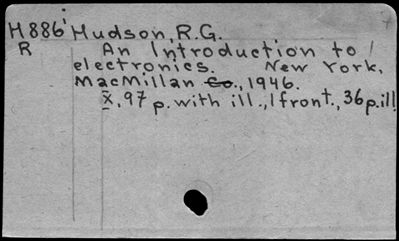 H886 Hudson, R.G.
R An Introduction to
electronics. New York,
MacMillan Co., 1946.
x, 97 p. with ill., 1 front., 36 p. ill